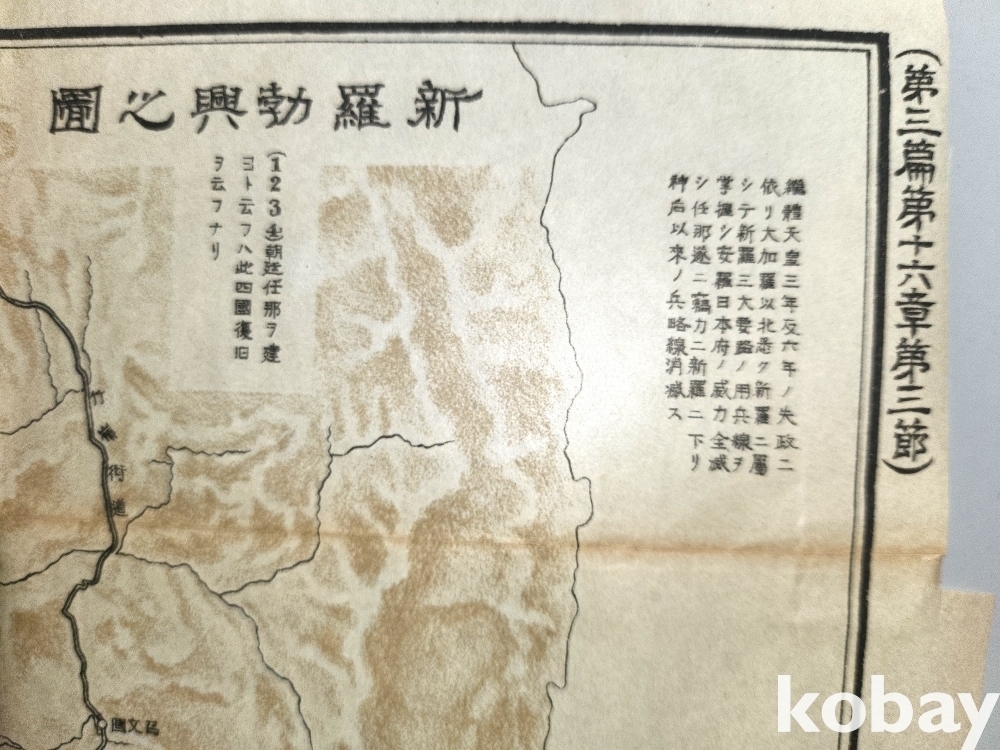 (第三篇第十六章第三節)
新羅勃興之圖
繼體天皇三年及六年ノ失政ニ
依リ大加羅以北悉ク新羅ニ屬
シテ新羅三大要路ノ用兵線ヲ
掌握シ安羅日本府ノ威力全滅
シ任那遂ニ竊カニ新羅ニ下リ
神后以來ノ兵略線消滅ス
(1234)朝廷任那ヲ建
ヨト云フハ此四國復旧
ヲ云フナリ
竹嶺街道
召文國
kobay